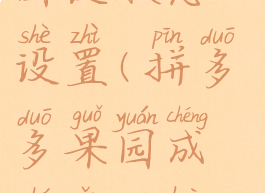 shè zhì pīn duō
设置(拼多
duō guǒ yuán chéng
多果园成